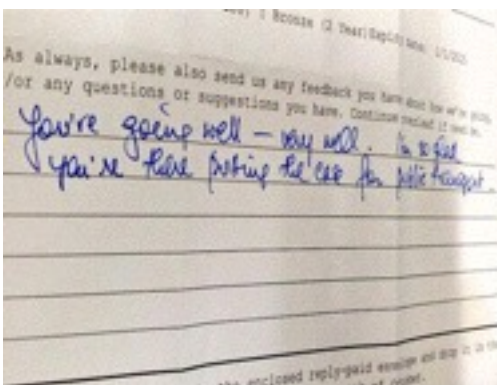 Bronze (2 Year) Expiry Date: 1/1/2025
As always, please also send us any feedback you have about how we're going,
/or any questions or suggestions you have. Continue overleaf if need be.
You're going well – very well. I'm so glad
you're there putting the case for public transport
enclosed reply-paid envelope and drop it in the